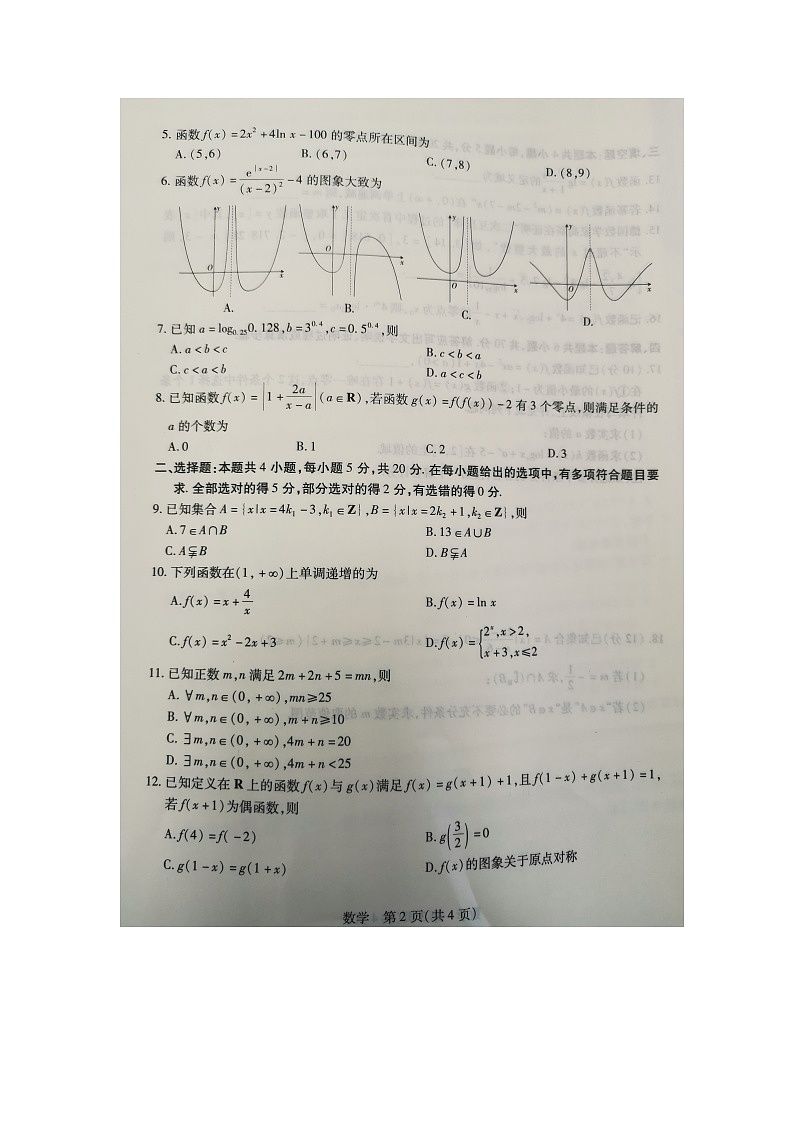 5. 函数f(x)=2x²+4ln x-100的零点所在区间为
A. (5,6) B. (6,7) C. (7,8) D. (8,9)
6. 函数f(x)=e^{|x-2|}/(x-2)²-4的图象大致为
A. B. C. D.
7. 已知a=log₀.₂₅0.128,b=3^{0.4},c=0.5^{0.4},则
A. a<b<c B. c<b<a
C. c<a<b D. a<c<b
8. 已知函数f(x)=|1+2a/(x-a)|(a∈R),若函数g(x)=f(f(x))-2有3个零点,则满足条件的
a的个数为
A. 0 B. 1 C. 2 D. 3
二、选择题:本题共4小题,每小题5分,共20分.在每小题给出的选项中,有多项符合题目要
求.全部选对的得5分,部分选对的得2分,有选错的得0分.
9. 已知集合A={x|x=4k₁-3,k₁∈Z},B={x|x=2k₂+1,k₂∈Z},则
A. 7∈A∩B B. 13∈A∪B
C. A⫋B D. B⫋A
10. 下列函数在(1,+∞)上单调递增的为
A. f(x)=x+4/x B. f(x)=ln x
C. f(x)=x²-2x+3 D. f(x)={2ˣ,x>2, x+3,x≤2
11. 已知正数m,n满足2m+2n+5=mn,则
A. ∀m,n∈(0,+∞),mn≥25
B. ∀m,n∈(0,+∞),m+n≥10
C. ∃m,n∈(0,+∞),4m+n=20
D. ∃m,n∈(0,+∞),4m+n<25
12. 已知定义在R上的函数f(x)与g(x)满足f(x)=g(x+1)+1,且f(1-x)+g(x+1)=1,
若f(x+1)为偶函数,则
A. f(4)=f(-2) B. g(3/2)=0
C. g(1-x)=g(1+x) D. f(x)的图象关于原点对称
数学 第2页(共4页)